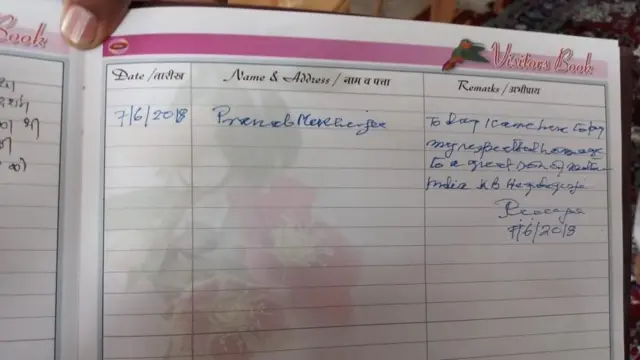 Book
Visitors Book
Date / तारीख Name & Address / नाम व पत्ता Remarks / अभीप्राय
7/6/2018 Pranab Mukherjee
To day I came here to pay
my respect and homage
to a great son of mother
India KB Hegdewar
7/6/2018